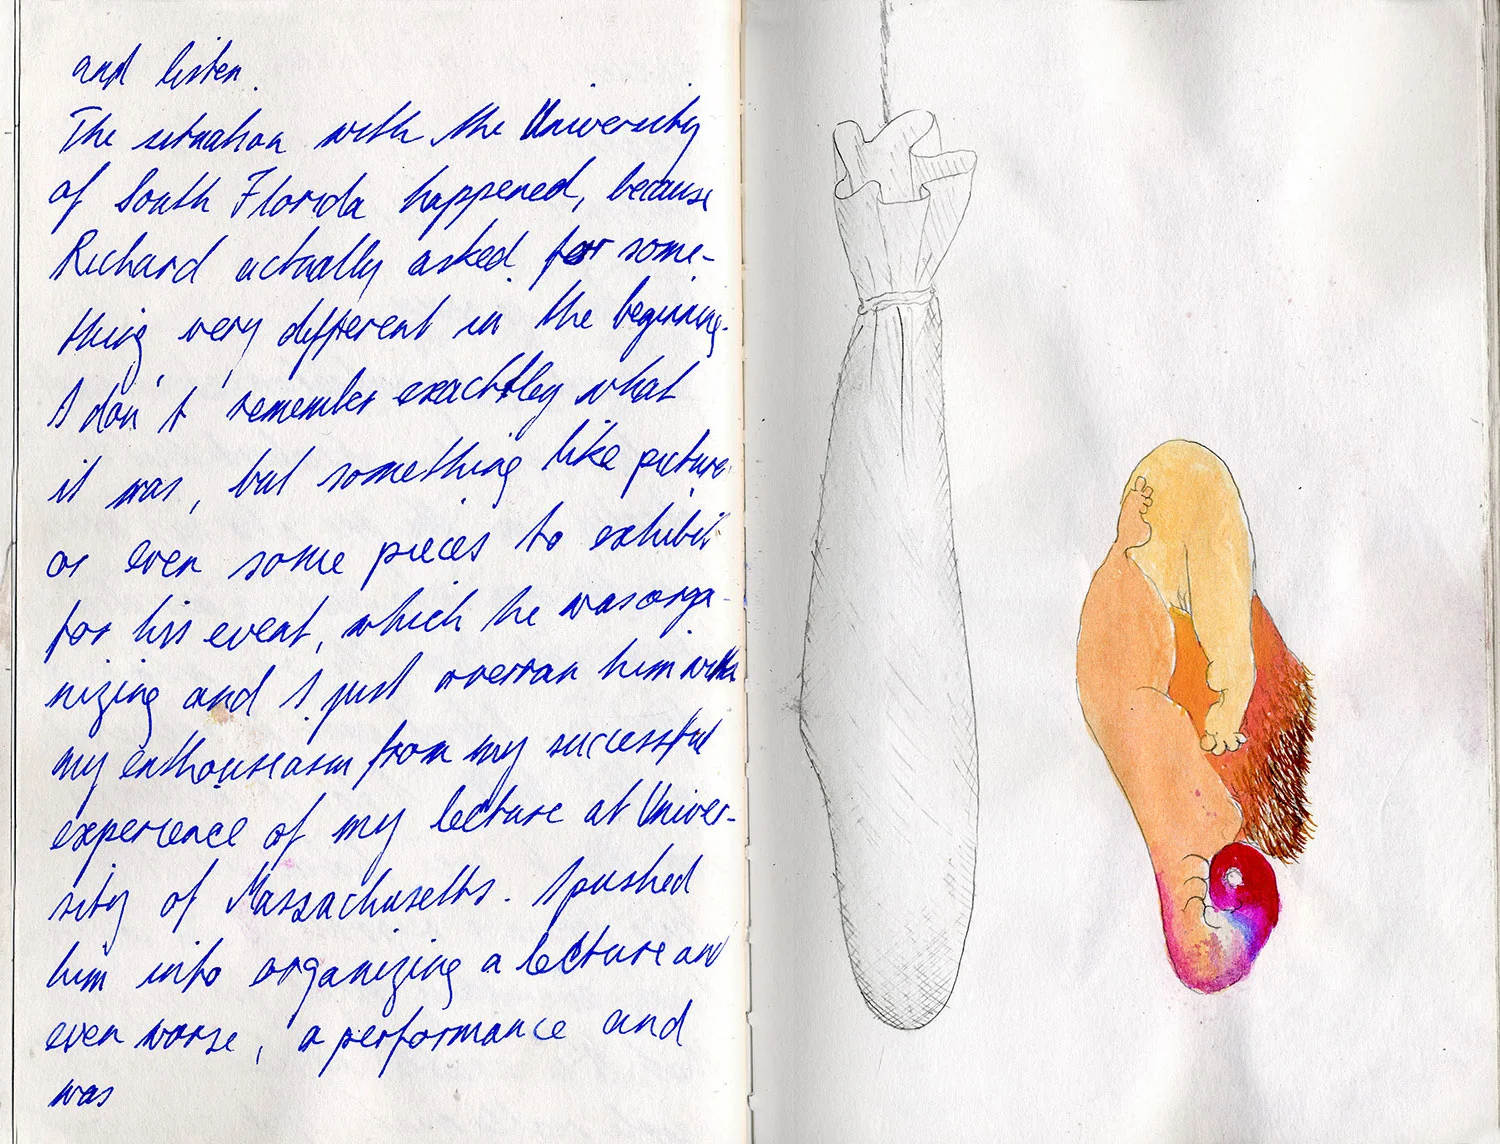 and listen.
The situation with the University
of South Florida happened, because
Richard actually asked for some-
thing very different in the beginning.
I don't remember exachtley what
it was, but something like picture
or even some pieces to exhibit
for his event, which he was orga-
nizing and I just overran him with
my enthousiasm from my successful
experience of my lecture at Univer-
sity of Massachusetts. I pushed
him into organizing a lecture and
even worse, a performance and
was